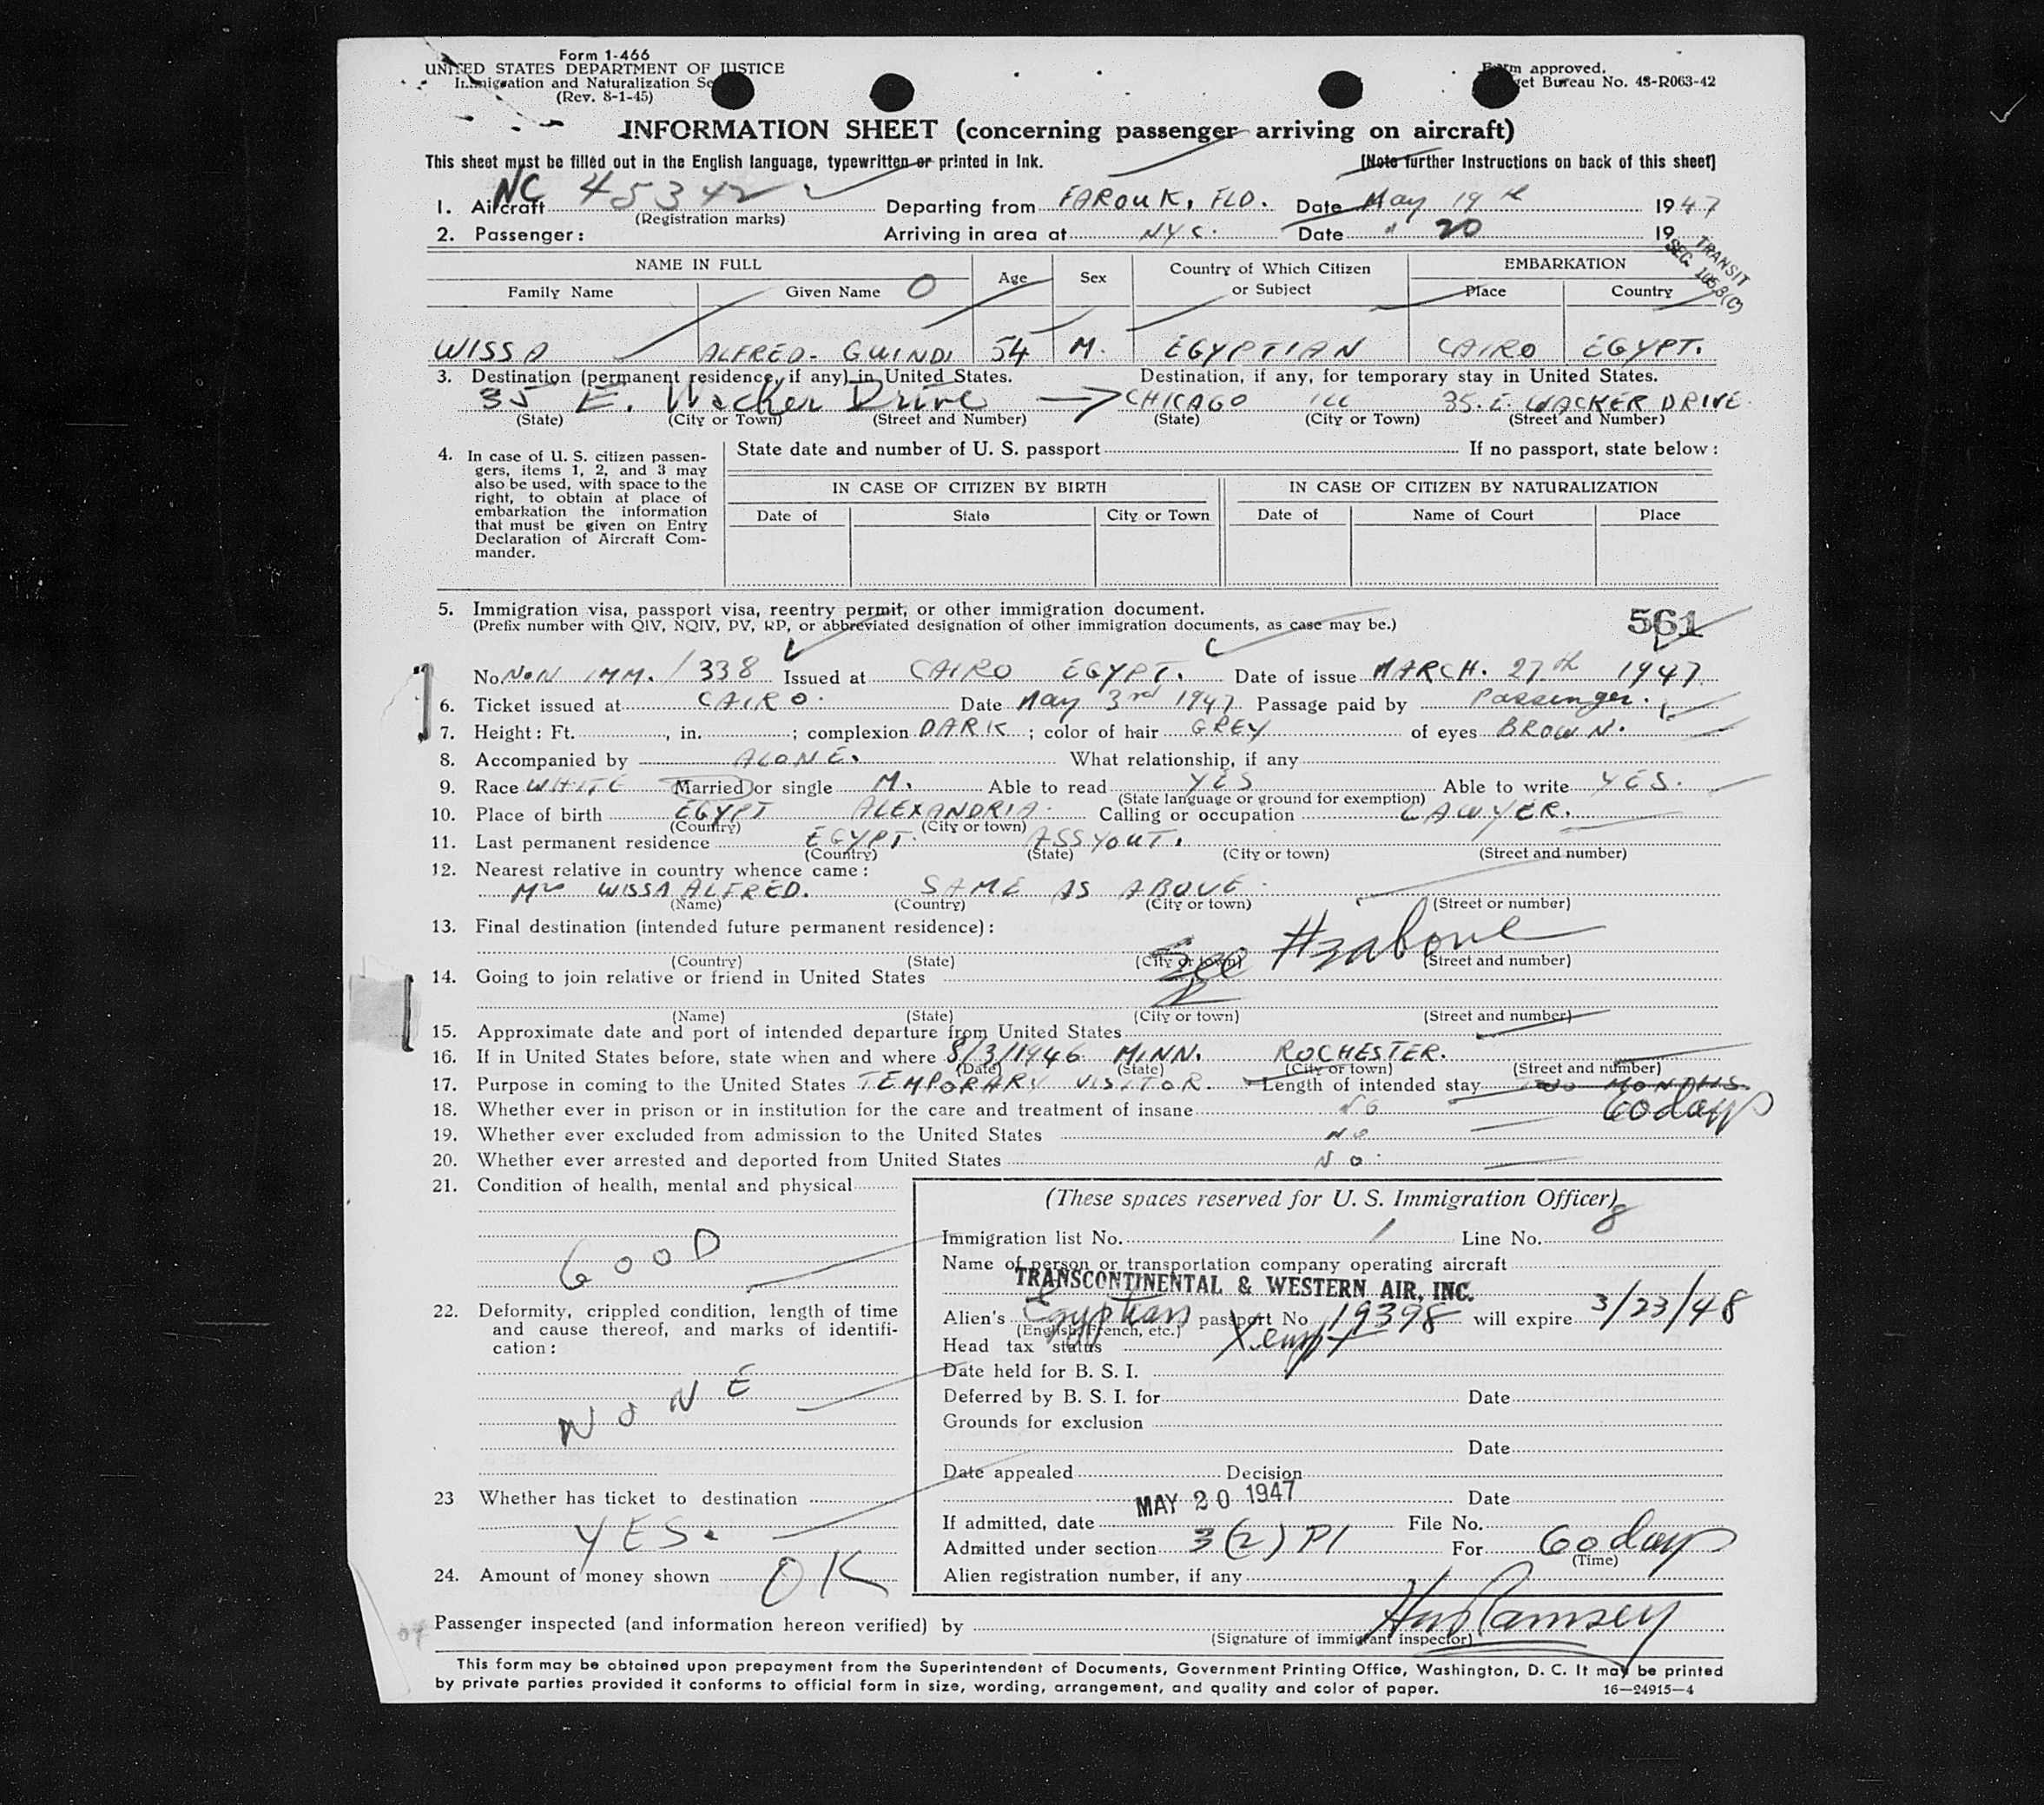 Form 1-466
UNITED STATES DEPARTMENT OF JUSTICE
Immigration and Naturalization Se
(Rev. 8-1-45)
Form approved.
et Bureau No. 43-R063-42
INFORMATION SHEET (concerning passenger arriving on aircraft)
This sheet must be filled out in the English language, typewritten or printed in Ink. [Note further Instructions on back of this sheet]
1. Aircraft NC 45342 Departing from FAROUK, FLD. Date May 19th 1947
(Registration marks)
2. Passenger: Arriving in area at NYC. Date " 20 19
TRANSIT
SEC. 105.3(C)
NAME IN FULL Age Sex Country of Which Citizen or Subject EMBARKATION
Family Name Given Name O Place Country
WISSA ALFRED- GUINDI 54 M. EGYPTIAN CAIRO EGYPT.
3. Destination (permanent residence, if any) in United States. Destination, if any, for temporary stay in United States.
35 E. Wacker Drive → CHICAGO ILL 35. E. WACKER DRIVE
(State) (City or Town) (Street and Number) (State) (City or Town) (Street and Number)
4. In case of U. S. citizen passen-
gers, items 1, 2, and 3 may
also be used, with space to the
right, to obtain at place of
embarkation the information
that must be given on Entry
Declaration of Aircraft Com-
mander.
State date and number of U. S. passport If no passport, state below:
IN CASE OF CITIZEN BY BIRTH IN CASE OF CITIZEN BY NATURALIZATION
Date of State City or Town Date of Name of Court Place
5. Immigration visa, passport visa, reentry permit, or other immigration document.
(Prefix number with QIV, NQIV, PV, RP, or abbreviated designation of other immigration documents, as case may be.)
561
No. NON IMM. / 338 Issued at CAIRO EGYPT. Date of issue MARCH. 27th 1947.
6. Ticket issued at CAIRO. Date May 3rd 1947. Passage paid by Passenger.
7. Height: Ft. , in. ; complexion DARK ; color of hair GREY of eyes BROWN.
8. Accompanied by ALONE. What relationship, if any
9. Race WHITE Married or single M. Able to read YES Able to write YES.
(State language or ground for exemption)
10. Place of birth EGYPT ALEXANDRIA. Calling or occupation LAWYER.
(Country) (City or town)
11. Last permanent residence EGYPT. ASSYOUT.
(Country) (State) (City or town) (Street and number)
12. Nearest relative in country whence came:
WISSA ALFRED. SAME AS ABOVE.
(Name) (Country) (City or town) (Street or number)
13. Final destination (intended future permanent residence):
See #3 above
(Country) (State) (City or town) (Street and number)
14. Going to join relative or friend in United States
(Name) (State) (City or town) (Street and number)
15. Approximate date and port of intended departure from United States
16. If in United States before, state when and where 8/3/1946 MINN. ROCHESTER.
(Date) (State) (City or town) (Street and number)
17. Purpose in coming to the United States TEMPORARY VISITOR. Length of intended stay TWO MONTHS.
60 days
18. Whether ever in prison or in institution for the care and treatment of insane NO
19. Whether ever excluded from admission to the United States NO
20. Whether ever arrested and deported from United States NO.
21. Condition of health, mental and physical
GOOD
22. Deformity, crippled condition, length of time
and cause thereof, and marks of identifi-
cation:
NONE
23 Whether has ticket to destination
YES.
24. Amount of money shown OK
(These spaces reserved for U. S. Immigration Officer)
Immigration list No. 1 Line No. 8
Name of person or transportation company operating aircraft
TRANSCONTINENTAL & WESTERN AIR, INC.
Alien's Egyptian passport No. 19398 will expire 3/23/48
(English, French, etc.)
Head tax status Xempt
Date held for B. S. I.
Deferred by B. S. I. for Date
Grounds for exclusion
Date
Date appealed Decision
Date
If admitted, date MAY 20 1947 File No.
Admitted under section 3(2) P1 For 60 days
(Time)
Alien registration number, if any
Passenger inspected (and information hereon verified) by Ramsey
(Signature of immigrant inspector)
This form may be obtained upon prepayment from the Superintendent of Documents, Government Printing Office, Washington, D. C. It may be printed
by private parties provided it conforms to official form in size, wording, arrangement, and quality and color of paper. 16—24915-4